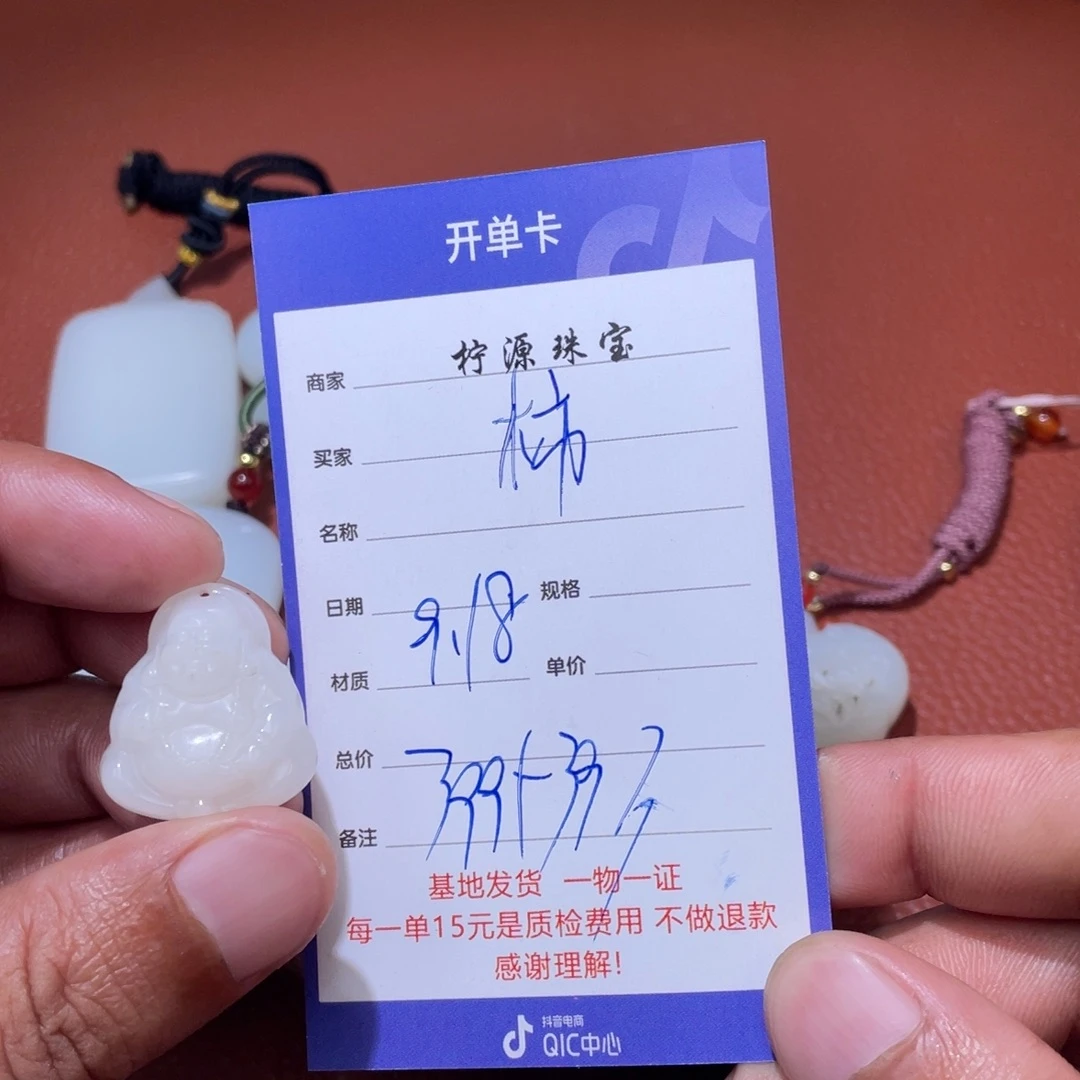 开单卡
商家 柠源珠宝
买家 柿
名称
日期 9.18 规格
材质 单价
总价
备注
基地发货 一物一证
每一单15元是质检费用 不做退款
感谢理解!
抖音电商
QIC中心